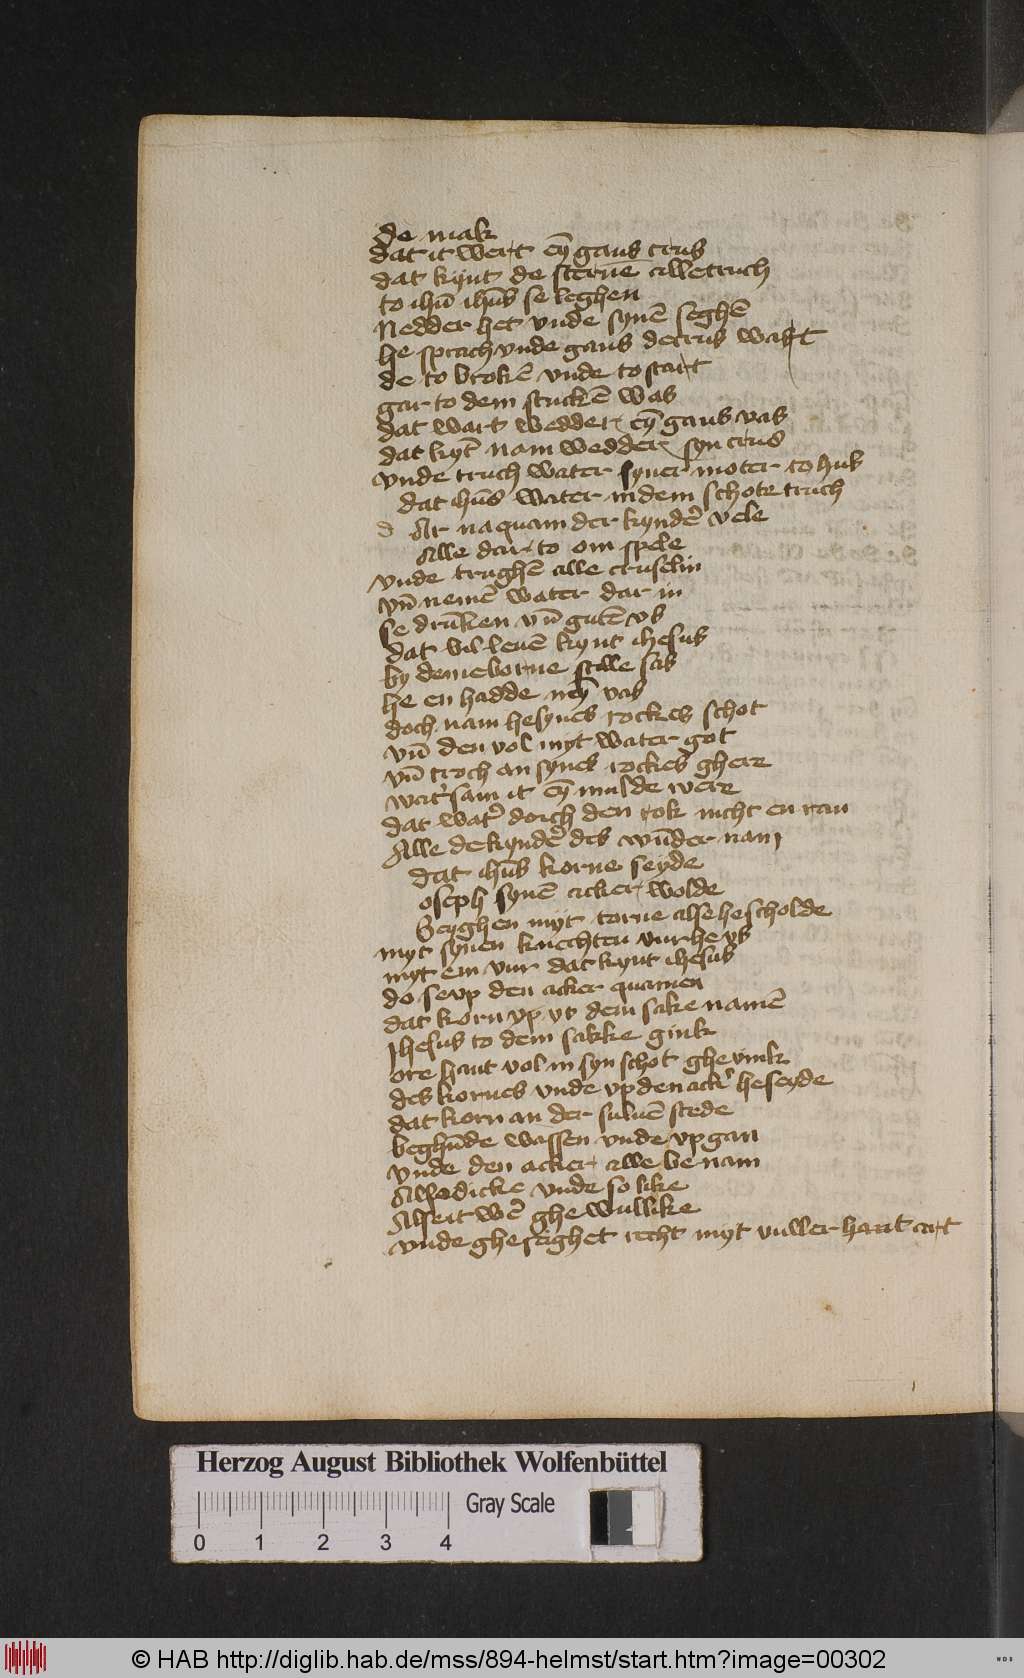 de mak
dat it wert eȳ gans crus
dat kynt de sterne alletruch
to ihū ihūs se leghen
Nedder het vnde synē seghē
he sprach vnde gans de crus wart
de to brokē vnde to start
gar to dem stuckē was
dat wart wedder eȳ gans vas
dat kȳt nam wedder syn crus
vnde truch water syner moter to hus
dat ihūs water in dem schote truch
d Ar na quam der kyndē vele
Alle dar to om spele
vnde trughē alle cruselin
vn̄ nemē water dar in
se drunken vn̄ gutē vs
dat vil leuē kynt ihesus
by deme borne stille sas
he en hadde neȳ vas
doch nam he synes rockes schot
vn̄ den vol myt water got
vn̄ troch an synes rockes ghere
water sam it eȳ mulde were
dat wat' dorch den rok nicht en ran
Alle de kyndē des wūder nam
dat ihūs korne seyde
oseph synē acker wolde
Seyghen myt torne alse he scholde
myt synen knechten vur he vs
myt em vur dat kynt ihesus
do se vp den acker quamen
dat korn vp vt dem sake namē
Ihesus to dem sakke gink
ore hant vol in syn schot ghe vink
des kornes vnde vp den ack' he seyde
dat korn an der suluē stede
beghūde wassen vnde vp gan
vnde den acker alle be nam
Also dicke vnde so like
Alse it wē ghe wullike
vnde ghe seighet recht myt vuller hant art
Herzog August Bibliothek Wolfenbüttel
Gray Scale
0 1 2 3 4
© HAB http://diglib.hab.de/mss/894-helmst/start.htm?image=00302